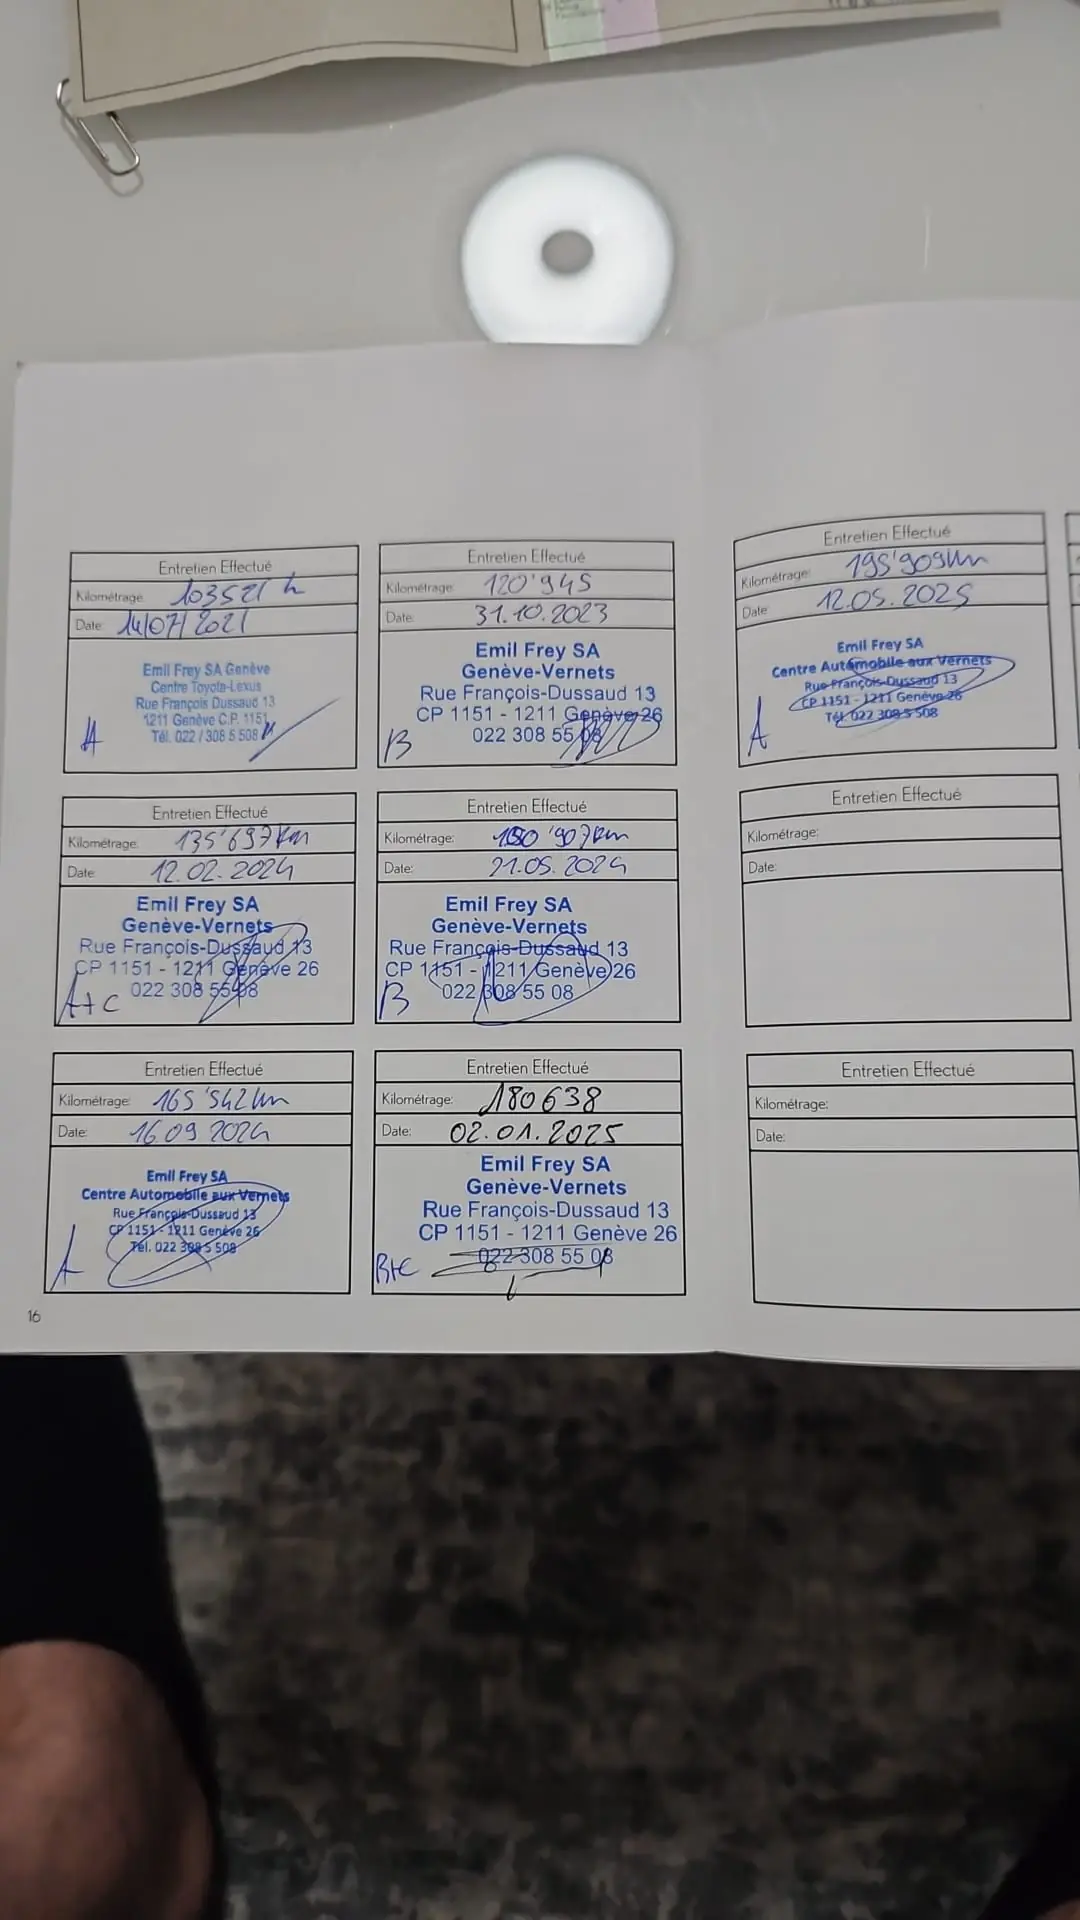 Entretien Effectué
Kilométrage: 103521 h
Date: 14/07/2021
Emil Frey SA Genève
Centre Toyota-Lexus
Rue François Dussaud 13
1211 Genève C.P. 1151
Tél. 022 / 308 5 508
A
Entretien Effectué
Kilométrage: 120'945
Date: 31.10.2023
Emil Frey SA
Genève-Vernets
Rue François-Dussaud 13
CP 1151 - 1211 Genève 26
022 308 55 08
B
Entretien Effectué
Kilométrage: 135'697 km
Date: 12.02.2024
Emil Frey SA
Genève-Vernets
Rue François-Dussaud 13
CP 1151 - 1211 Genève 26
022 308 55 08
A+C
Entretien Effectué
Kilométrage: 150'907 km
Date: 21.05.2024
Emil Frey SA
Genève-Vernets
Rue François-Dussaud 13
CP 1151 - 1211 Genève 26
022 308 55 08
B
Entretien Effectué
Kilométrage: 165'542 km
Date: 16.09.2024
Emil Frey SA
Centre Automobile aux Vernets
Rue François-Dussaud 13
CP 1151 - 1211 Genève 26
Tél. 022 308 5 508
A
Entretien Effectué
Kilométrage: 180638
Date: 02.01.2025
Emil Frey SA
Genève-Vernets
Rue François-Dussaud 13
CP 1151 - 1211 Genève 26
022 308 55 08
B+C
16
Entretien Effectué
Kilométrage: 195'909 km
Date: 12.05.2025
Emil Frey SA
Centre Automobile aux Vernets
Rue François-Dussaud 13
CP 1151 - 1211 Genève 26
Tél. 022 308 5 508
A
Entretien Effectué
Kilométrage:
Date:
Entretien Effectué
Kilométrage:
Date: